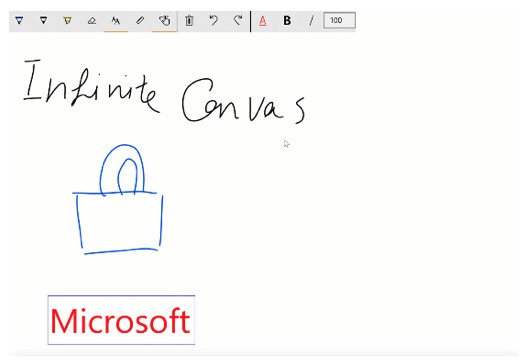 A B / 100
Infinite Canvas
Microsoft